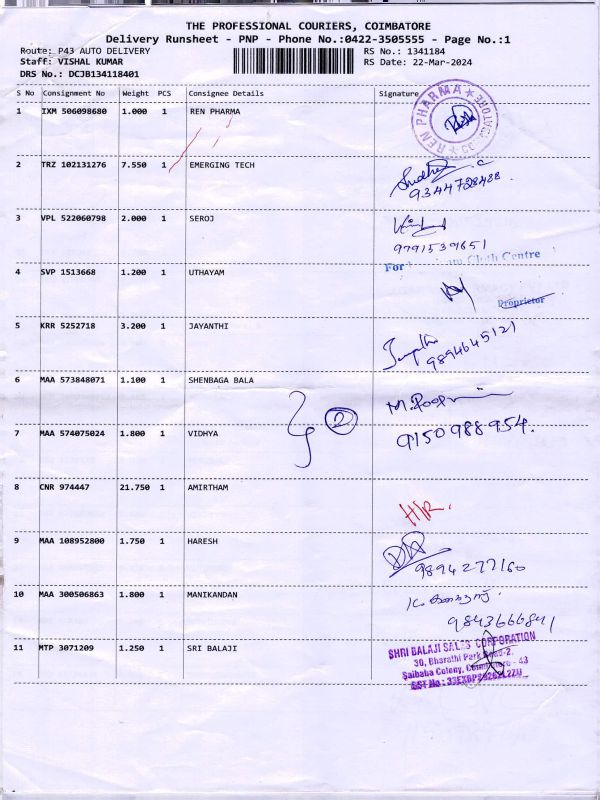 THE PROFESSIONAL COURIERS, COIMBATORE
Delivery Runsheet - PNP - Phone No.:0422-3505555 - Page No.:1
Route: P43 AUTO DELIVERY RS No.: 1341184
Staff: VISHAL KUMAR RS Date: 22-Mar-2024
DRS No.: DCJB134118401
S No Consignment No Weight PCS Consignee Details Signature
1 IXM 506098680 1.000 1 REN PHARMA
REN PHARMA
2 TRZ 102131276 7.550 1 EMERGING TECH
9344728488
3 VPL 522060798 2.000 1 SEROJ
9791539651
For Cloth Centre
4 SVP 1513668 1.200 1 UTHAYAM
Proprietor
5 KRR 5252718 3.200 1 JAYANTHI
9894645121
6 MAA 573848071 1.100 1 SHENBAGA BALA
2
7 MAA 574075024 1.800 1 VIDHYA
9150988954.
8 CNR 974447 21.750 1 AMIRTHAM
H/R.
9 MAA 108952800 1.750 1 HARESH
9894277160
10 MAA 300506863 1.800 1 MANIKANDAN
9843666841
11 MTP 3071209 1.250 1 SRI BALAJI
SHRI BALAJI SALES CORPORATION
30, Bharathi Park Road-2.
Saibaba Colony, Coimbatore - 43
GST No :